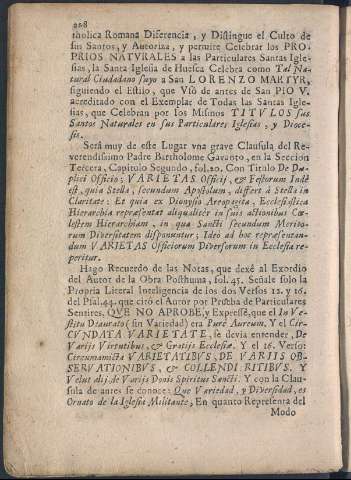 228
tholica Romana Diferencia, y Distingue el Culto de
sus Santos, y Autoriza, y permite Celebrar los PRO-
PRIOS NATURALES a las Particulares Santas Igle-
sias, la Santa Iglesia de Huesca Celebra como Tal Na-
tural Ciudadano suyo a San LORENZO MARTYR,
siguiendo el Estilo, que Usò de antes de San PIO V.
acreditado con el Exemplar de Todas las Santas Igle-
sias, que Celebran por los Mismos TITVLOS sus
Santos Naturales en sus Particulares Iglesias, y Dioce-
sis.
Será muy de este Lugar vna grave Clausula del Re-
verendissimo Padre Bartholome Gavanto, en la Seccion
Tercera, Capitulo Segundo, fol. 10. Con Titulo De Du-
plici Officio; VARIETAS Officij, & Festorum Inde
est, quia Stella, secundum Apostolum, differt à Stella in
Claritate: Et quia ex Dionysio Areopagita, Ecclesiastica
Hierarchia repræsentat aliqualitèr in suis actionibus Cœ-
lestem Hierarchiam, in qua Sancti secundum Merito-
rum Diversitatem disponuntur; Ideo ad hoc repræsentan-
dum VARIETAS Officiorum Diversorum in Ecclesia re-
peritur.
Hago Recuerdo de las Notas, que dexè al Exordio
del Autor de la Obra Posthuma, fol. 45. Señale solo la
Propria Literal Inteligencia de los dos Versos 12. y 16.
del Psal. 44. que citó el Autor por Prueba de Particulares
Sentires, QVE NO APROBE, y Expressè, que el In Ve-
stitu Deaurato (sin Variedad) era Pure Aureum. Y el Cir-
CVNDATA VARIETATE, se devia entender, De
Varijs Virtutibus, & Gratijs Ecclesiæ. Y el 16. Verso:
Circumamicta VARIETATIBVS, DE VARIIS OB-
SERVATIONIBVS, & COLLENDI RITIBVS. Y
Velut dij. de Varijs Donis Spiritus Sancti. Y con la Clau-
sula de antes se conoce: Que Variedad, y Diversidad, es
Ornato de la Iglesia Militante, En quanto Representa del
Modo